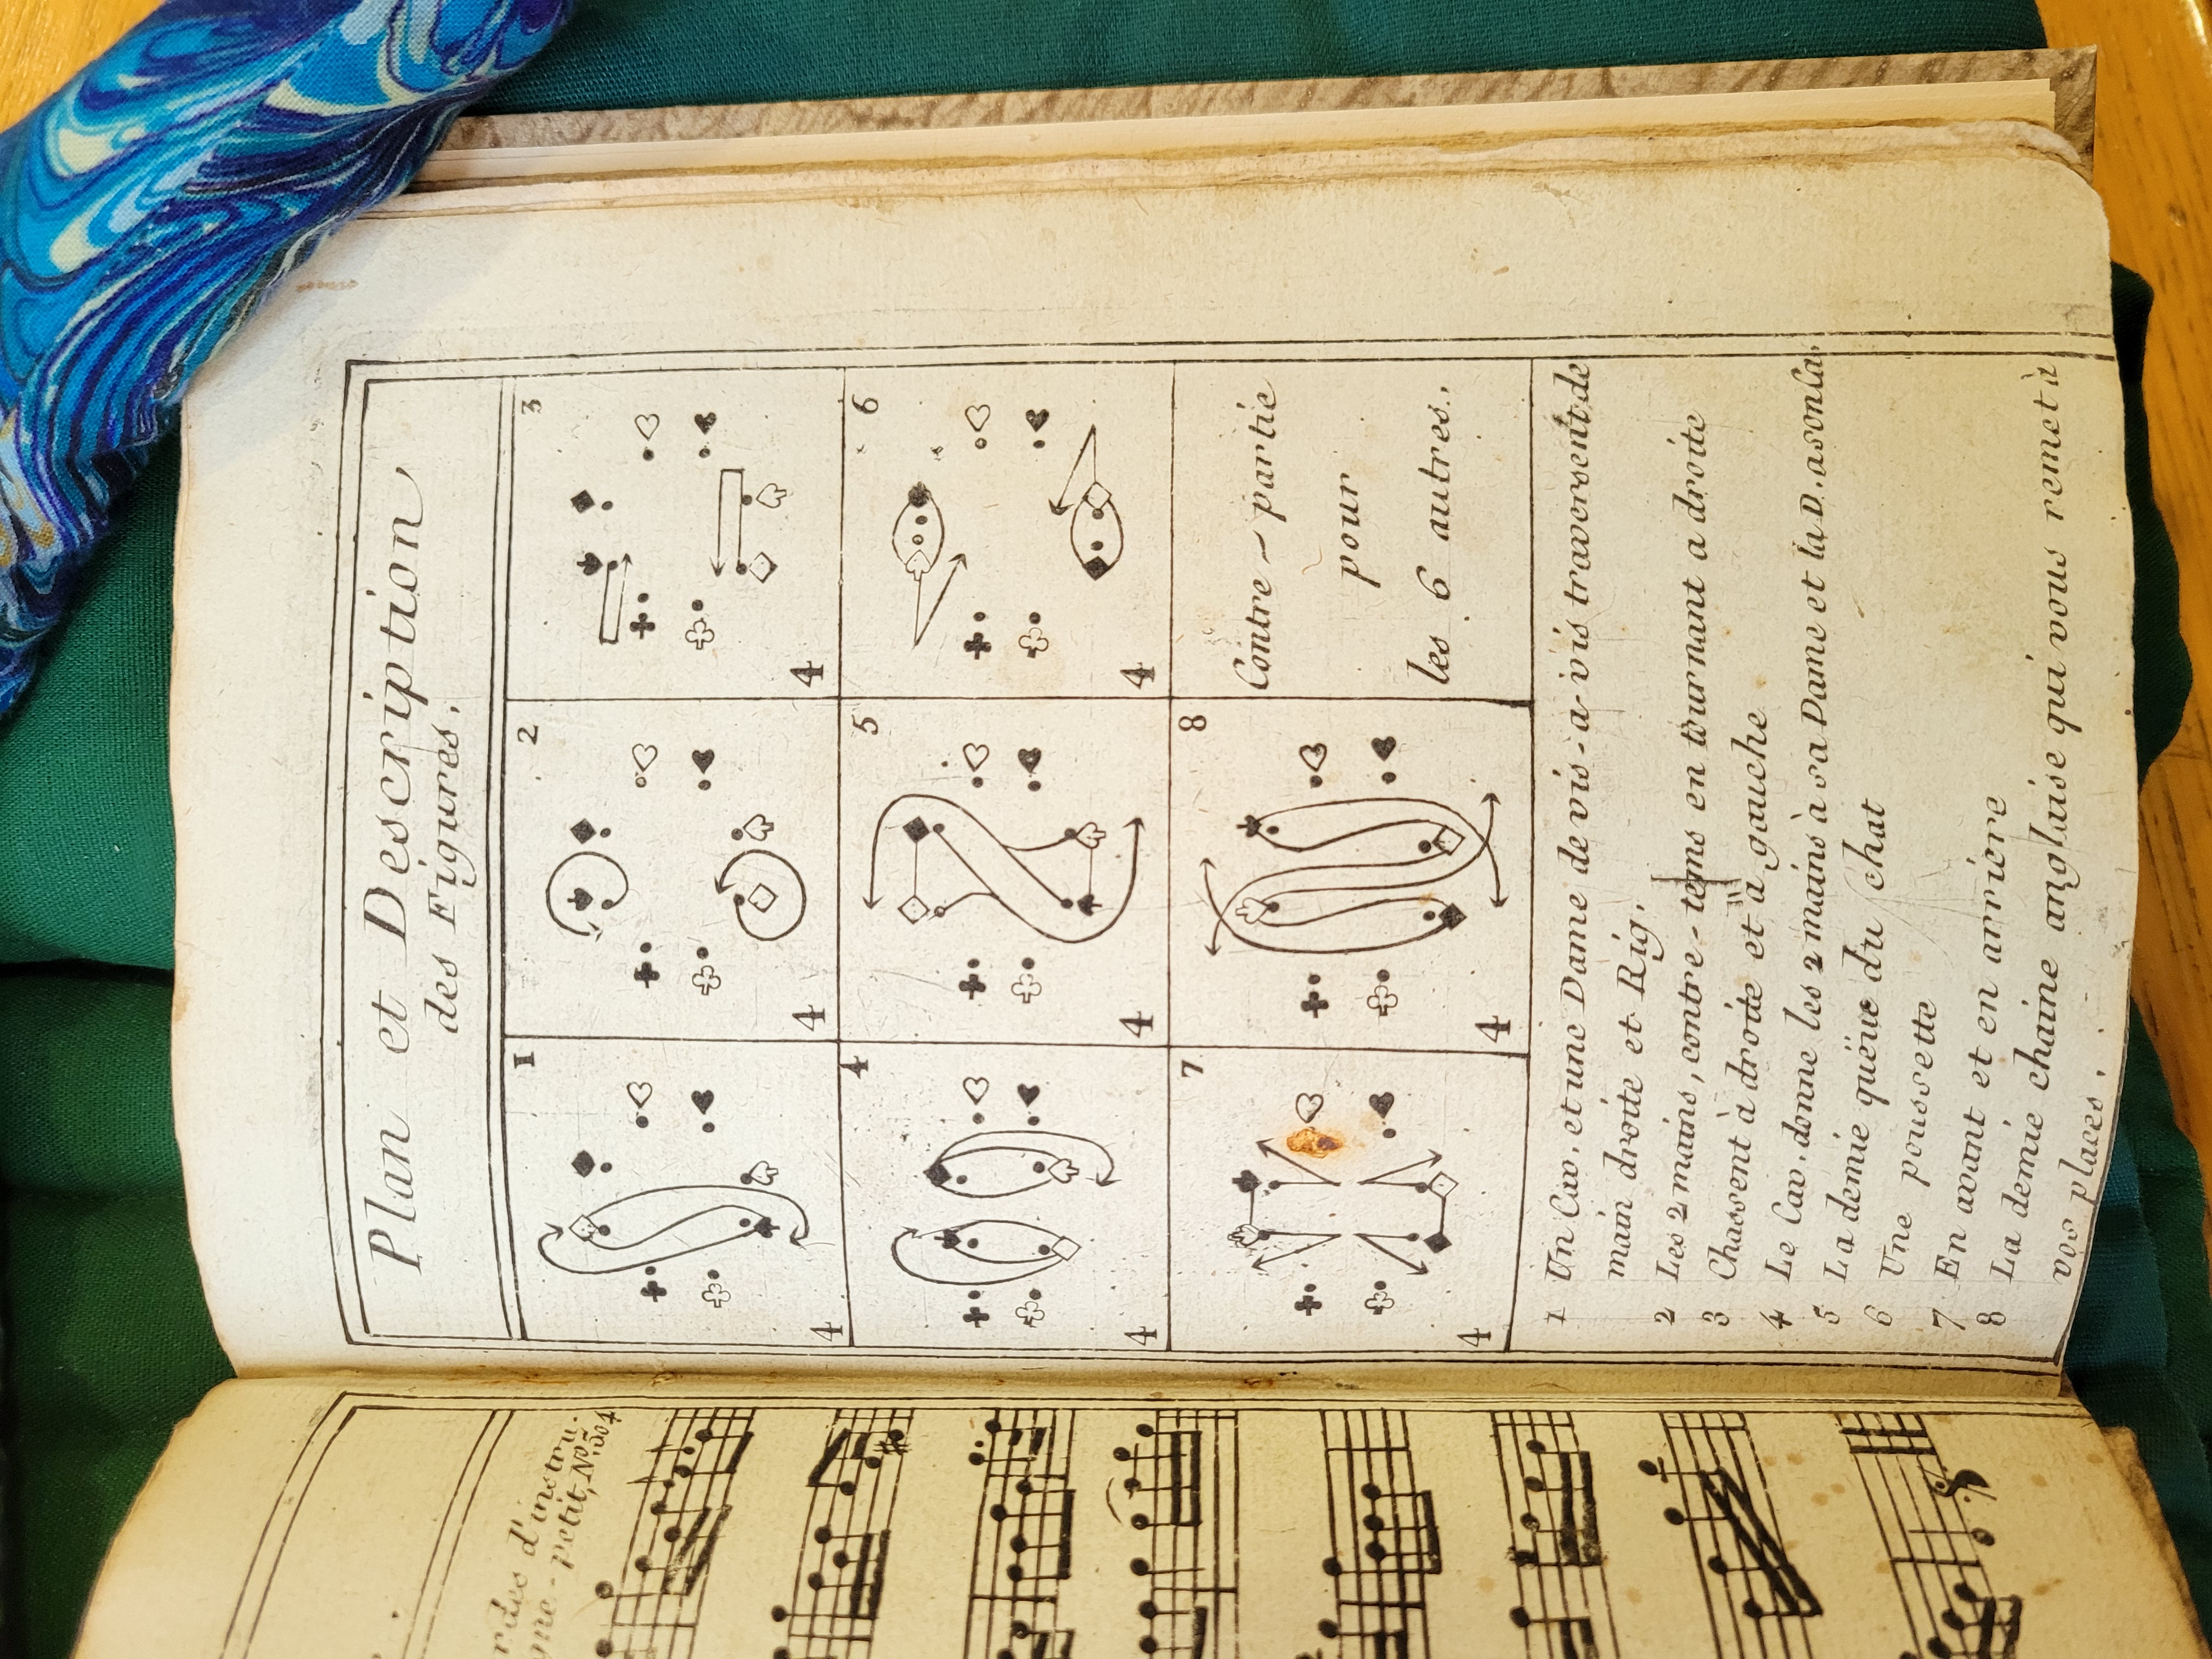 Plan et Description
des Figures.
1
4
2
4
3
4
4
4
5
4
6
4
7
4
8
4
Contre-partie
pour
les 6 autres.
1 Un Cav. et une Dame de vis-a-vis traversent de
main droite et Rig.
2 Les 2 mains, contre-tems en tournant a droite
3 Chassent à droite et à gauche
4 Le Cav. donne les 2 mains à sa Dame et la D. a son Ca.
5 La demie queüe du chat
6 Une poussette
7 En avant et en arriere
8 La demie chaine anglaise qui vous remet à
vos places.
d'instru.
-petit, No. 504